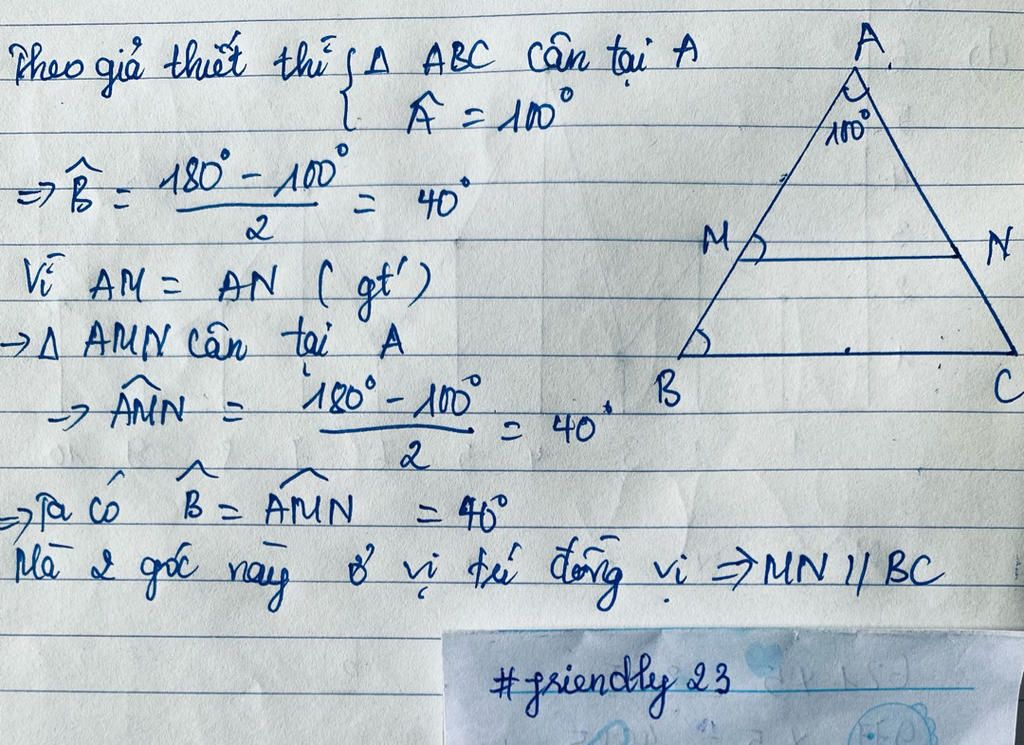 Theo giả thiết thì { Δ ABC cân tại A
Â = 100°
=> B̂ = (180° - 100°)/2 = 40°
Vì AM = AN (gt)
-> Δ AMN cân tại A
-> AMN̂ = (180° - 100°)/2 = 40°
=> Ta có B̂ = AMN̂ = 40°
Mà 2 góc này ở vị trí đồng vị => MN // BC
A
100°
M
N
B
C
#friendly 23